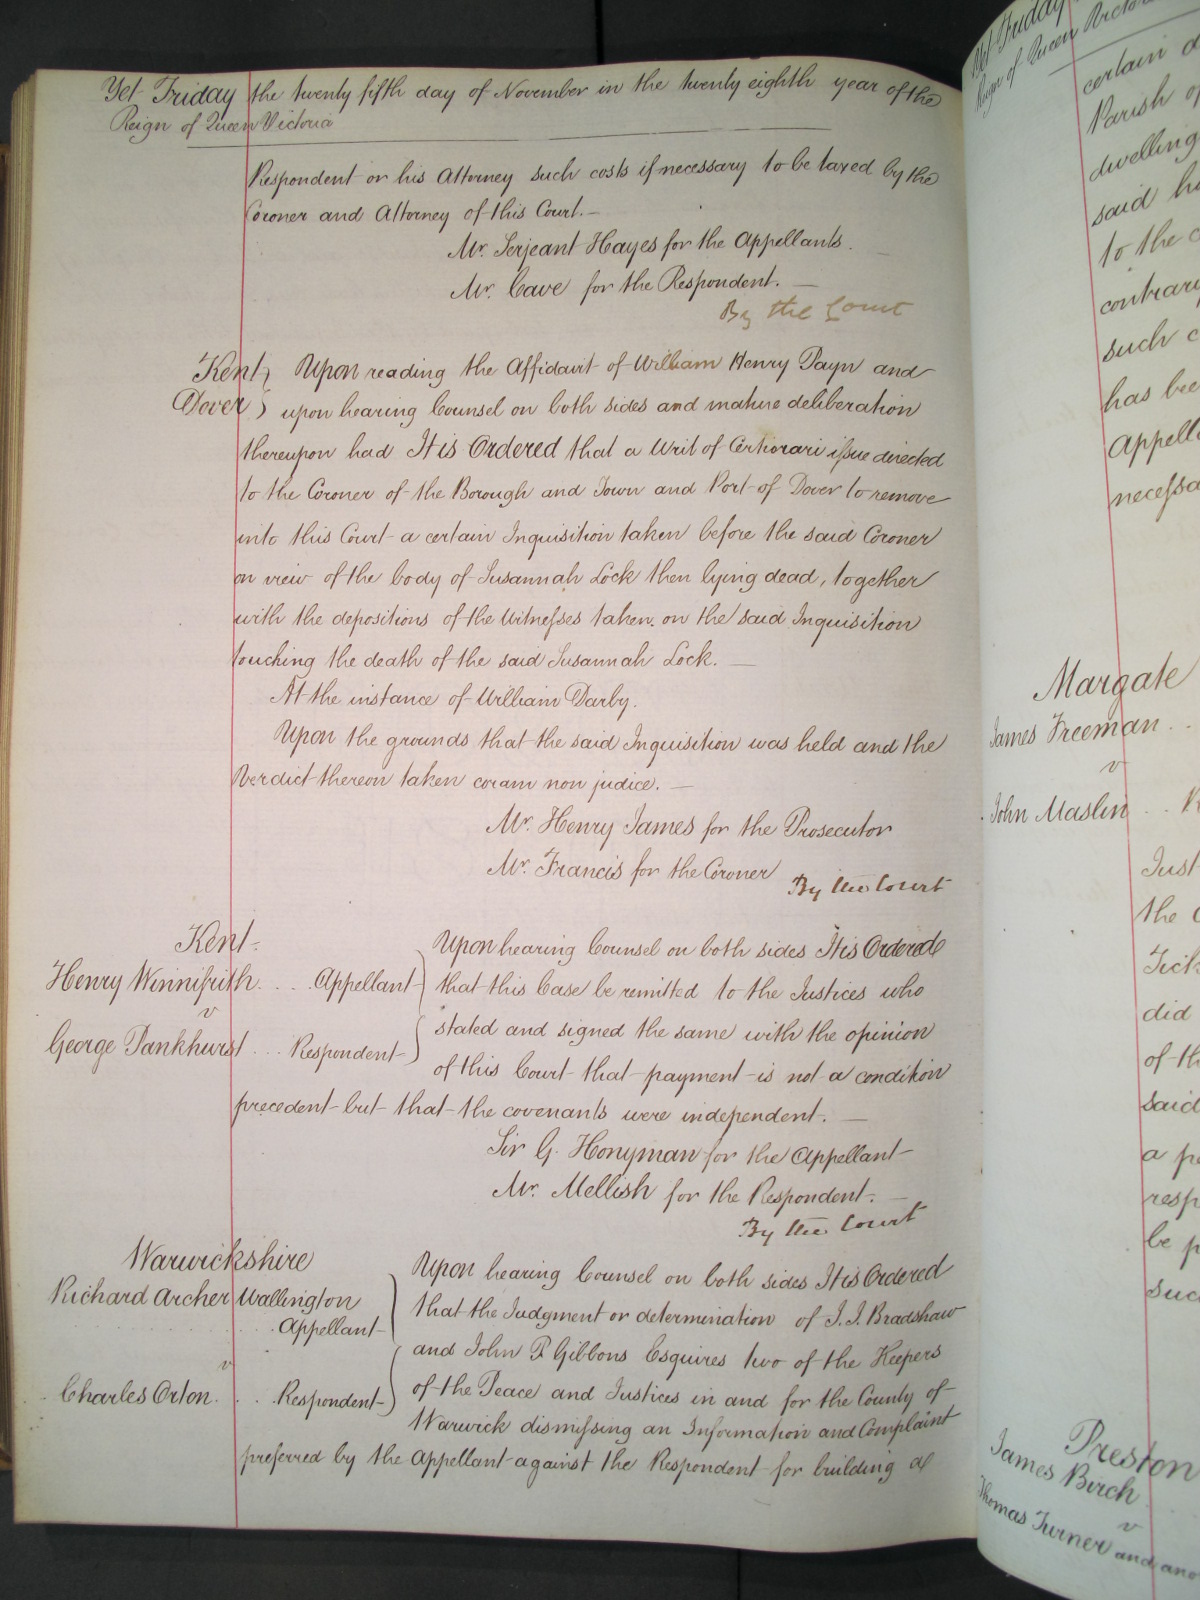 Yet Friday the twenty fifth day of November in the twenty eighth year of the
Reign of Queen Victoria
Respondent or his Attorney such costs if necessary to be taxed by the
Coroner and Attorney of this Court.—
Mr. Serjeant Hayes for the Appellants.
Mr. Cave for the Respondent. —
By the Court
Kent, Upon reading the Affidavit of William Henry Payn and
Dover } upon hearing Counsel on both sides and mature deliberation
thereupon had It is Ordered that a Writ of Certiorari issue directed
to the Coroner of the Borough and Town and Port of Dover to remove
into this Court a certain Inquisition taken before the said Coroner
on view of the body of Susannah Lock then lying dead, together
with the depositions of the Witnesses taken on the said Inquisition
touching the death of the said Susannah Lock. —
At the instance of William Darby.
Upon the grounds that the said Inquisition was held and the
Verdict thereon taken coram non judice. —
Mr. Henry James for the Prosecutor
Mr. Francis for the Coroner
By the Court
Kent.
Upon hearing Counsel on both sides It is Ordered
Henry Winnifrith . . . . Appellant
that this Case be remitted to the Justices who
v
stated and signed the same with the opinion
George Pankhurst . . . Respondent
of this Court that payment is not a condition
precedent but that the covenants were independent. —
Sir G. Honyman for the Appellant
Mr. Mellish for the Respondent. —
By the Court
Warwickshire
Upon hearing Counsel on both sides It is Ordered
Richard Archer Wallington
that the Judgment or determination of J. J. Bradshaw
Appellant
and John P Gibbons Esquires two of the Keepers
v
Charles Orton. . . . Respondent
of the Peace and Justices in and for the County of
Warwick dismissing an Information and Complaint
preferred by the Appellant against the Respondent for building a
Yet Friday
Reign of Queen Victoria
certain
Parish of
dwelling
said
to the
contrary
such c
has bee
Appell
necessa
Margate
James Freeman . .
v
John Maslin . . R
Just
the
Tick
did
of th
said
a pe
resp
be p
suc
Preston
James Birch
v
Thomas Turner and ano